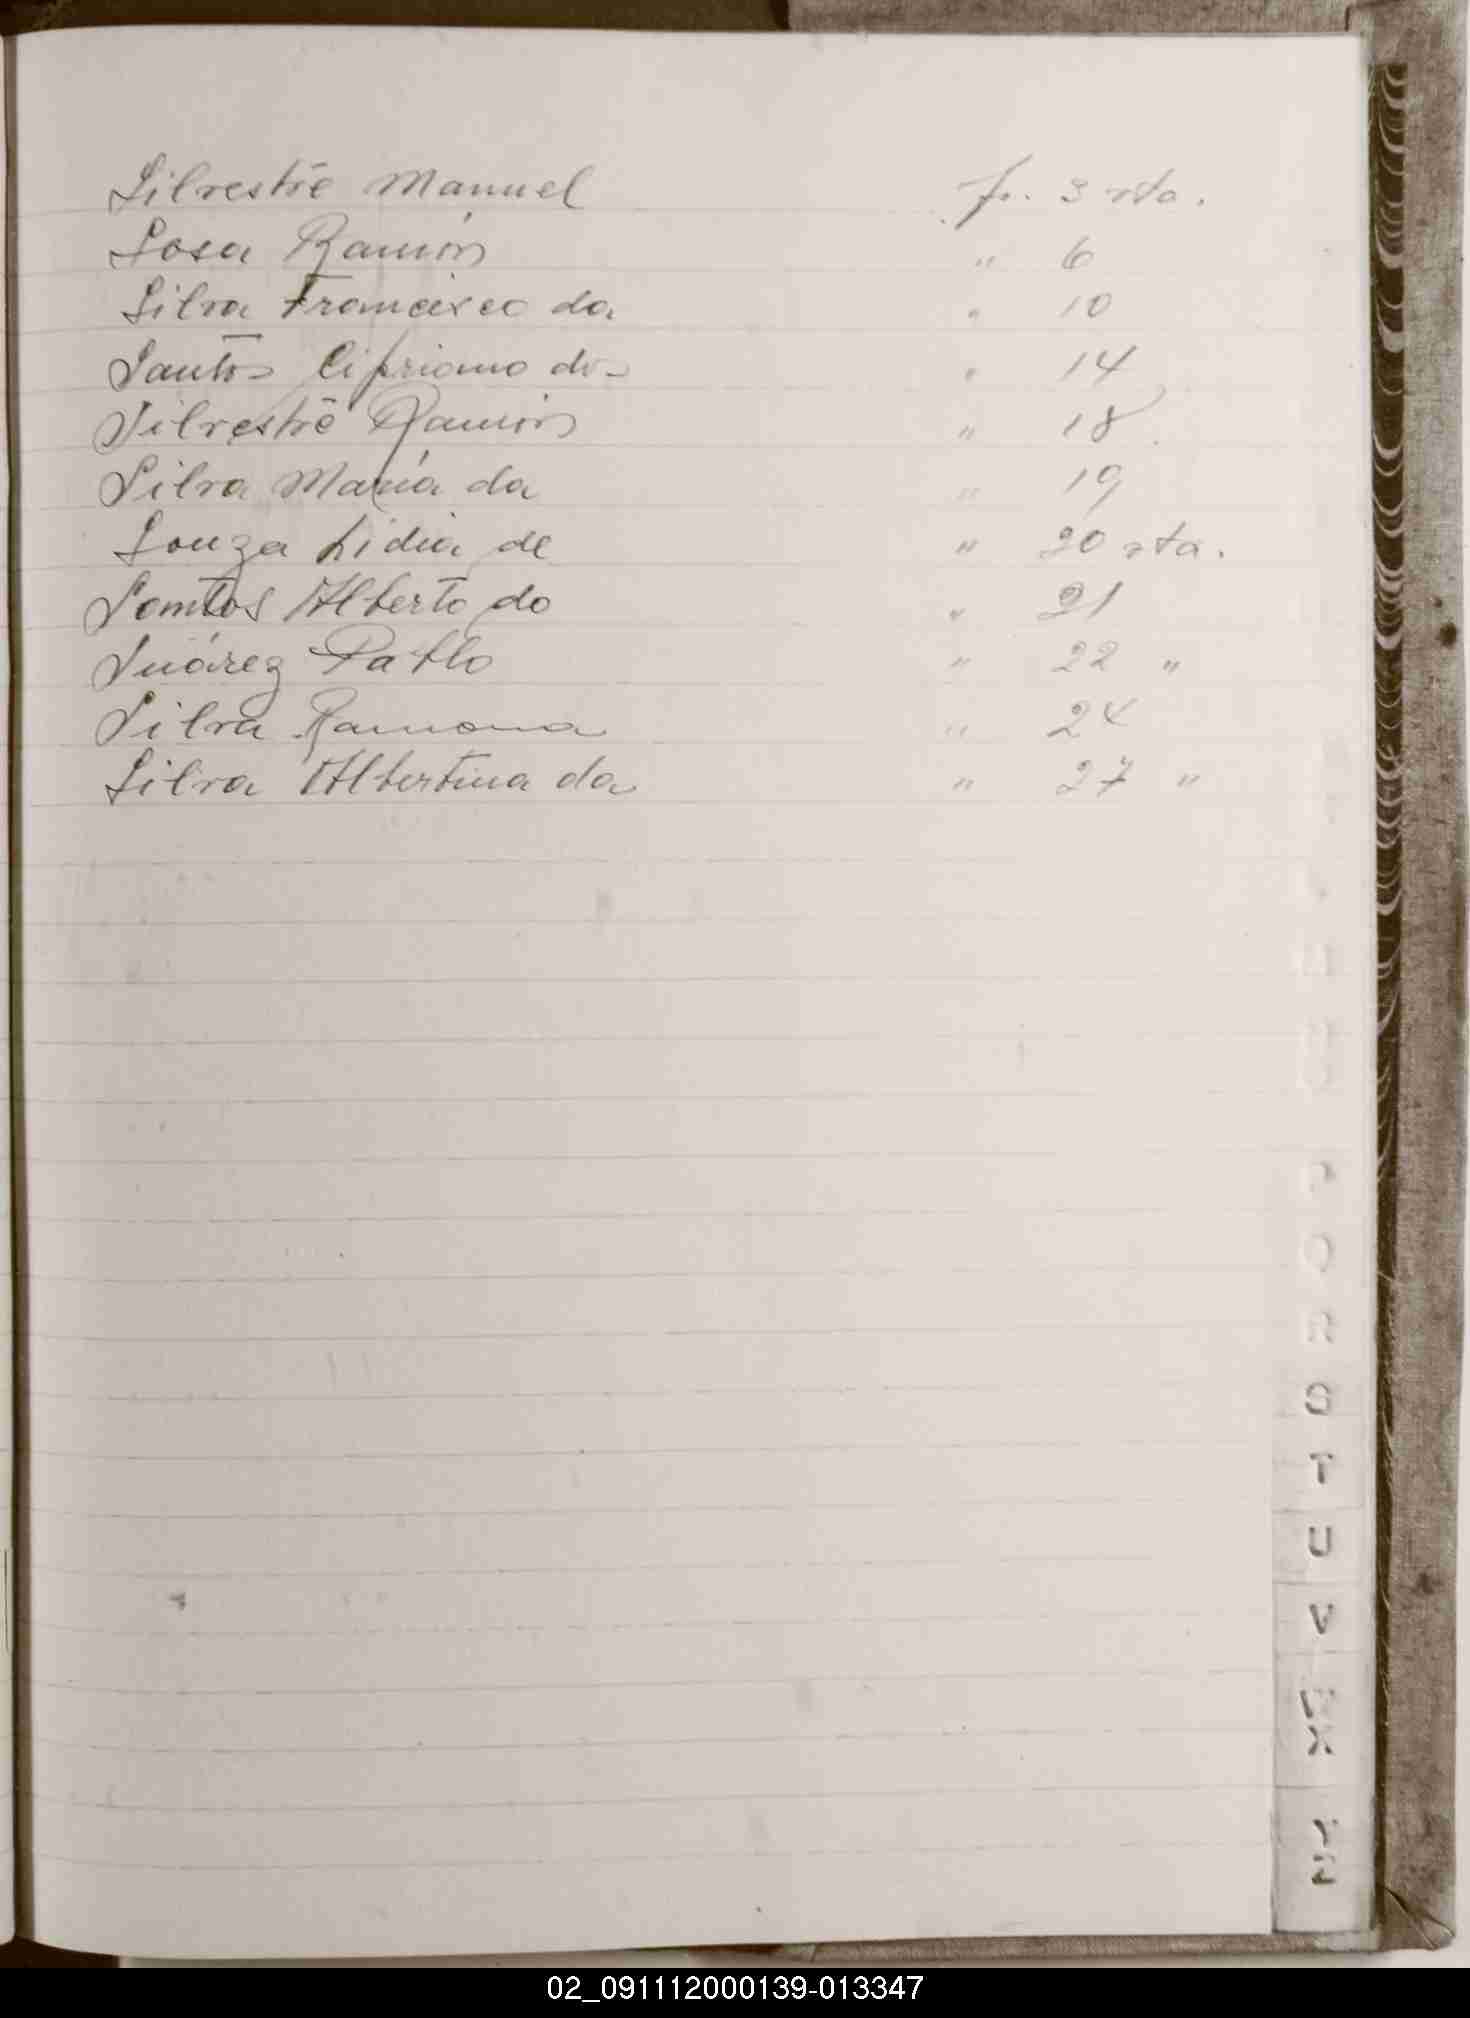 Silvestre Manuel fs. 3 vta.
Sosa Ramón " 6
Silva Francisco da " 10
Santos Cipriano dos " 14
Silvestre Ramón " 18
Silva María da " 19
Souza Lidia de " 20 vta.
Santos Alberto do " 21
Suárez Pablo " 22 "
Silva Ramona " 24
Silva Albertina da " 27 "
P
Q
R
S
T
U
V
X
02_091112000139-013347